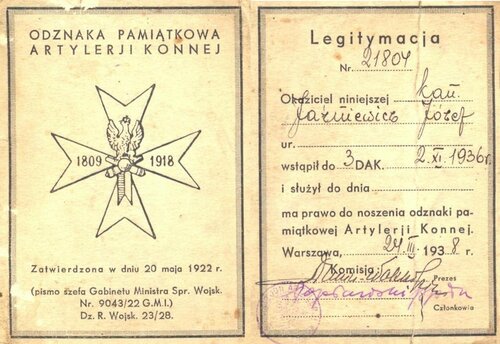 ODZNAKA PAMIĄTKOWA
ARTYLERJI KONNEJ
1809 1918
Zatwierdzona w dniu 20 maja 1922 r.
(pismo szefa Gabinetu Ministra Spr. Wojsk.
Nr. 9043/22 G.M.I.)
Dz. R. Wojsk. 23/28.
Legitymacja
Nr. 21804
Okaziciel niniejszej kan.
Jaźniewicz Józef
ur.
wstąpił do 3 DAK. 2.XI.1936 r.
i służył do dnia
ma prawo do noszenia odznaki pa-
miątkowej Artylerji Konnej.
Warszawa, 24.III. 1938 r.
Komisja
Prezes
Członkowie